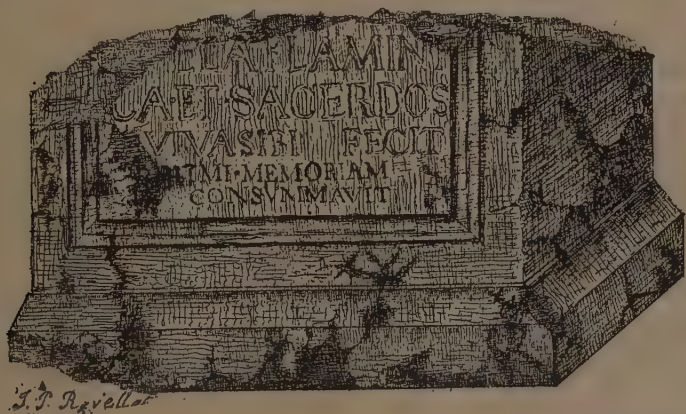 FLAMIN
CA·ET·SACERDOS
VIVA SIBI FECIT
MEMORIAM
CONSVMMAVIT
J. P. Revellat